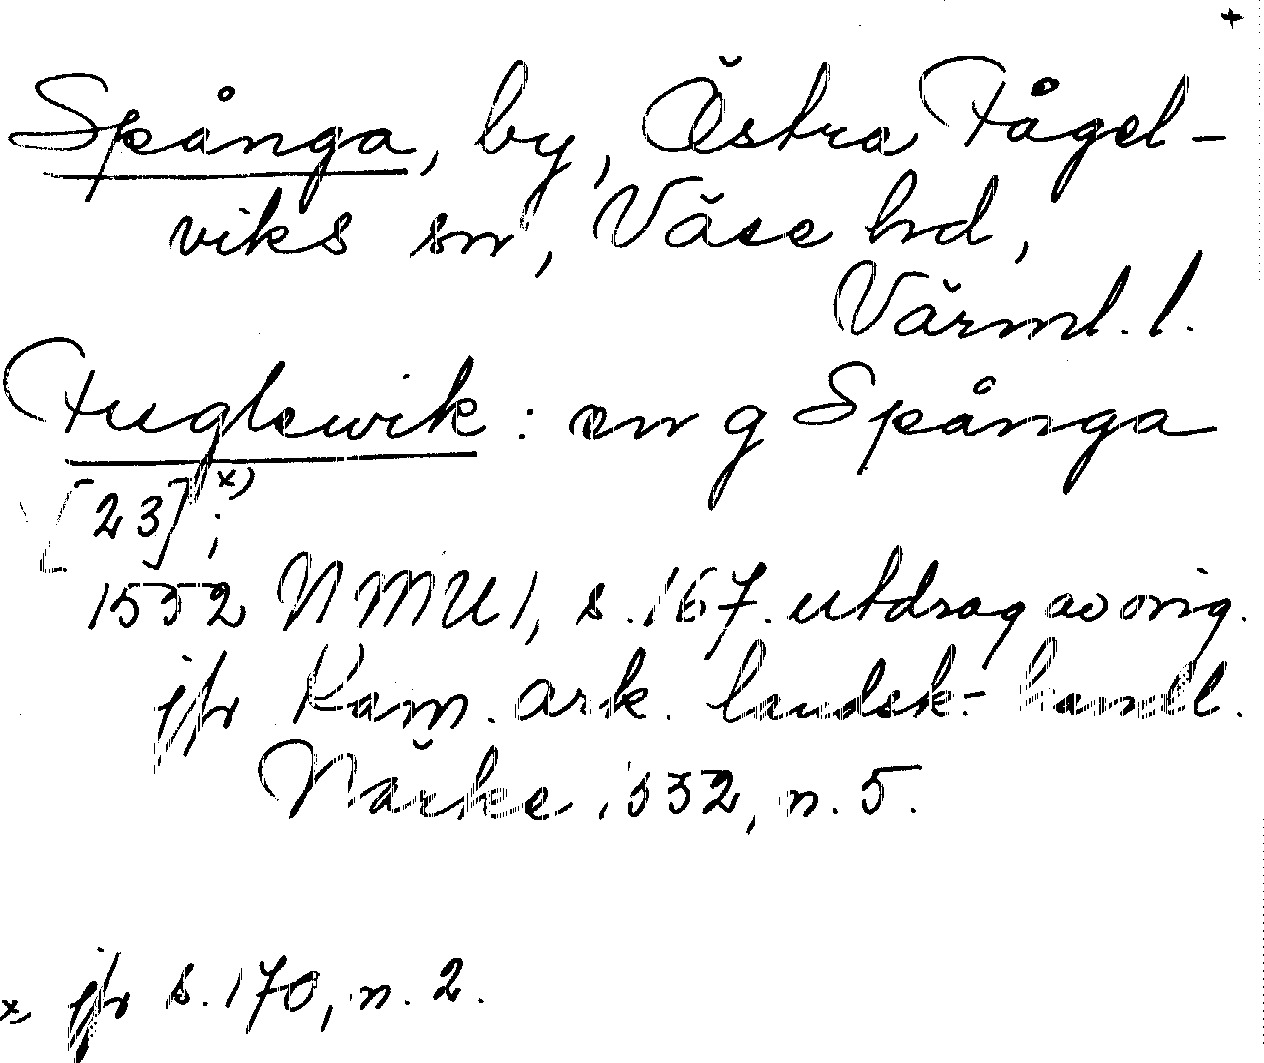 +
Spånga, by, Östra Fågel-
viks sn, Väse hd,
Värml. l.
Fuglewik : en g Spånga
[23] x) ;
1552 NMU 1, s. 167. utdrag av orig.
jfr Kam. ark. landsk.- handl.
Närke 1552, n. 5.
x jfr s. 170, n. 2.